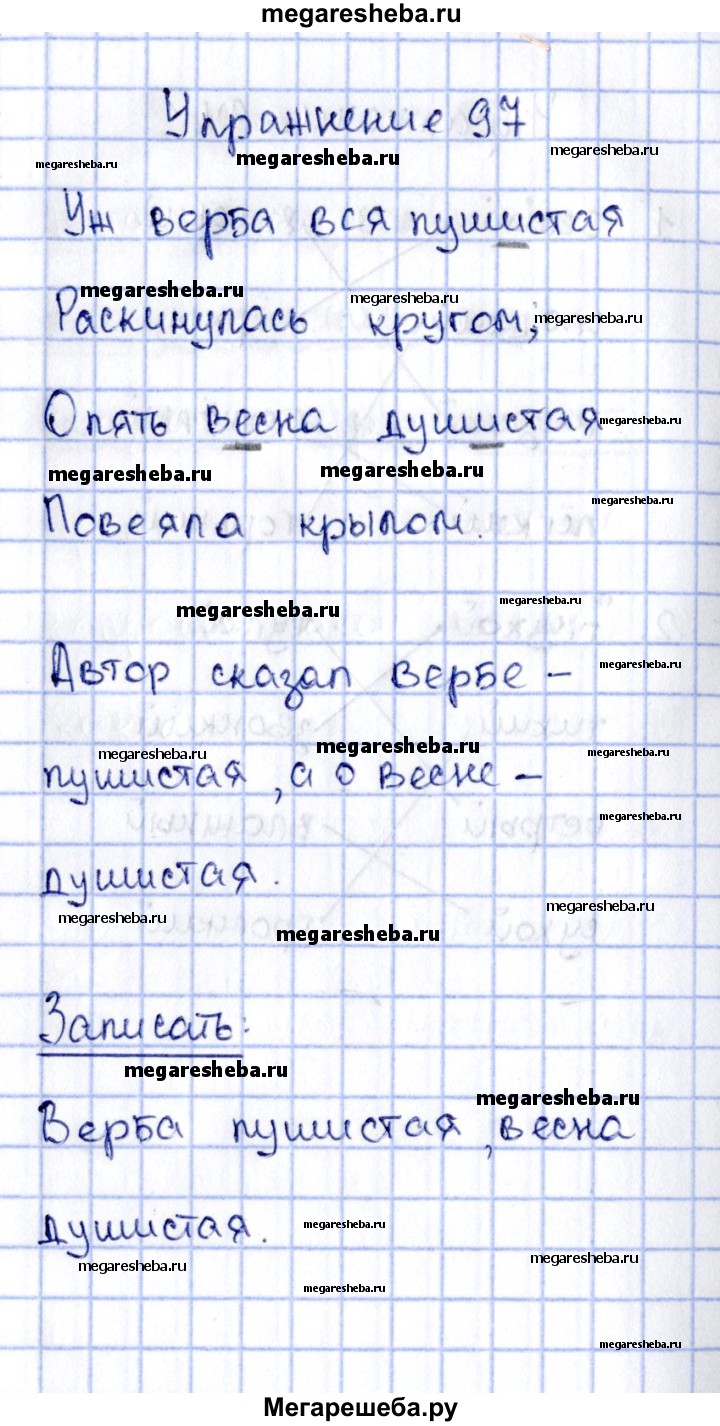 megaresheba.ru
Упражнение 97
megaresheba.ru
megaresheba.ru
megaresheba.ru
Уж верба вся пушистая
megaresheba.ru
megaresheba.ru
megaresheba.ru
Раскинулась кругом;
Опять весна душистая
megaresheba.ru
megaresheba.ru
megaresheba.ru
megaresheba.ru
Повеяла крылом.
megaresheba.ru
megaresheba.ru
Автор сказал вербе -
megaresheba.ru
megaresheba.ru
megaresheba.ru
megaresheba.ru
пушистая, а о весне -
megaresheba.ru
душистая.
megaresheba.ru
megaresheba.ru
megaresheba.ru
Записать:
megaresheba.ru
megaresheba.ru
Верба пушистая, весна
душистая.
megaresheba.ru
megaresheba.ru
megaresheba.ru
megaresheba.ru
megaresheba.ru
Мегарешеба.ру